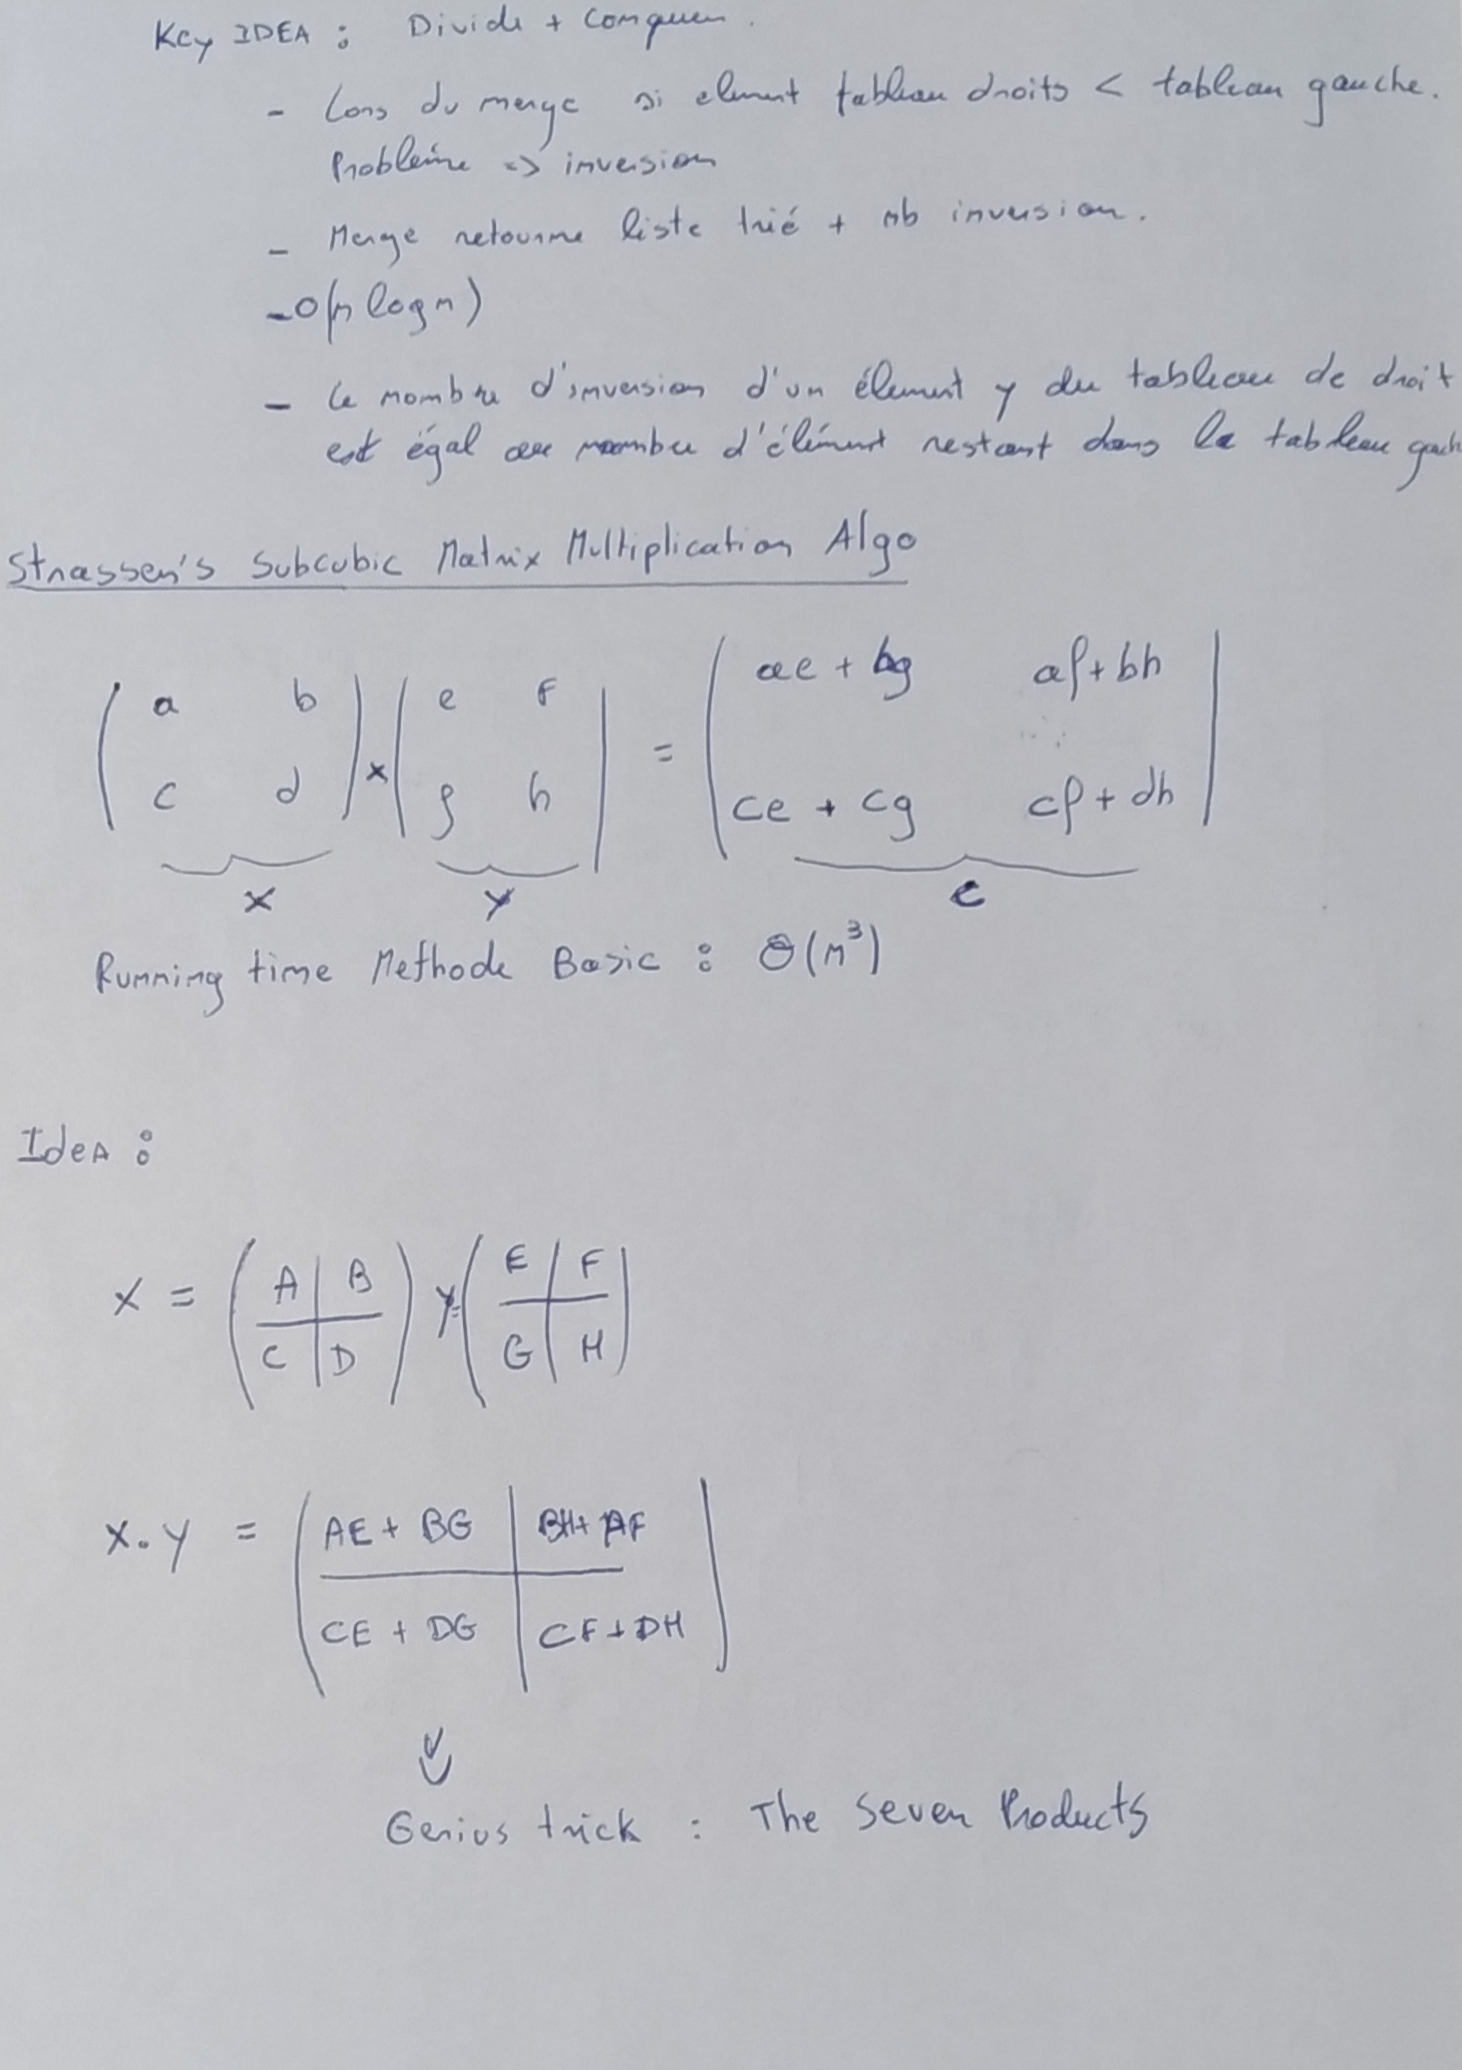 Key IDEA : Divide + Conquer.
- Lors du merge si element tableau droits < tableau gauche.
Problème => inversion
- Merge retourne liste trié + nb inversion.
- O(n log n)
- Le nombre d'inversion d'un élément y du tableau de droit
est égal au nombre d'élément restant dans le tableau gauch
Strassen's Subcubic Matrix Multiplication Algo
( a b ) x ( e f ) = ( ae + bg af + bh )
( c d ) ( g h ) ( ce + cg cf + dh )
X Y C
Running time Methode Basic : Θ(n³)
IdeA :
X = ( A | B ) Y = ( E | F )
( C | D ) ( G | H )
X.Y = ( AE + BG | BH + AF )
( CE + DG | CF + DH )
Genius trick : The Seven Products